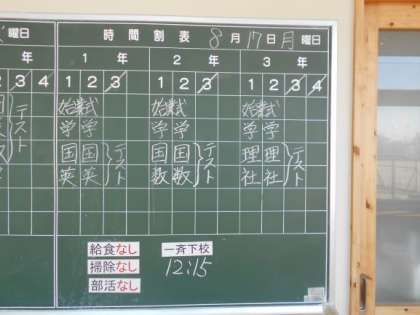 曜日
時間割表 8月17日月曜日
年 1年 2年 3年
2 3 4 1 2 3 1 2 3 1 2 3 4
始業式 始業式 始業式
学学 学学 学学
国国 国国 理理
英英 数数 社社
テスト テスト テスト テスト
給食なし 一斉下校
掃除なし 12:15
部活なし